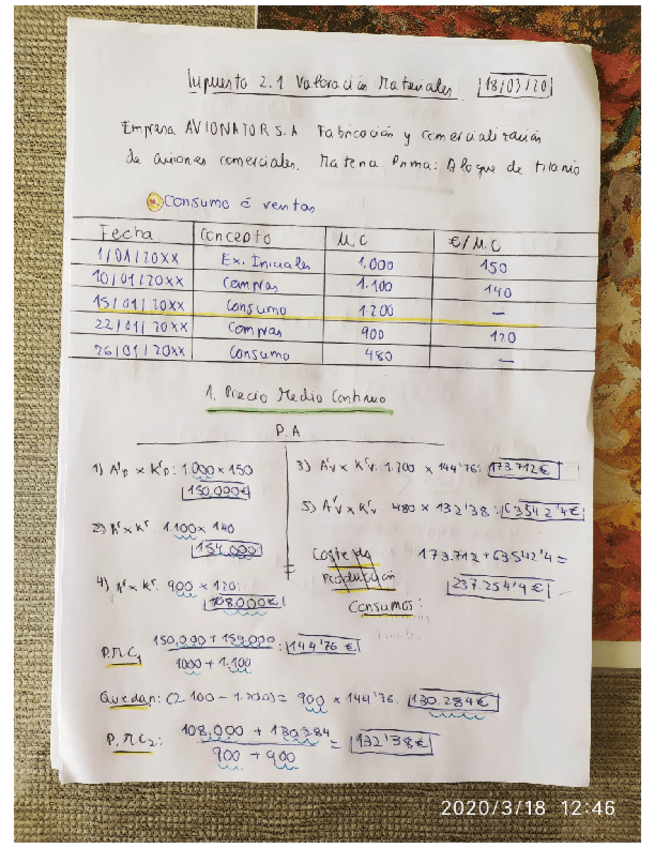 Supuesto 2.1 Valoración Materiales. 18/03/20
Empresa AVIONATOR S.A Fabricación y comercialización
de aviones comerciales. Materia Prima: Bloque de titanio
Consumo é ventas
Fecha Concepto U.C €/U.C
1/01/20XX Ex. Iniciales 1.000 150
10/01/20XX Compras 1.100 140
15/01/20XX Consumo 1.200 —
22/01/20XX Compras 900 120
26/01/20XX Consumo 480 —
1. Precio Medio Continuo
P.A
1) Aʳp x Kʳp: 1.000 x 150
150.000€
3) Aʳv x Kʳv: 1.200 x 144'76: 173.712€
2) Aʳ x Kʳ. 1.100 x 140
154.000
5) Aʳv x Kʳv. 480 x 132'38: 63542'4€
4) Aʳ x Kʳ. 900 x 120:
108.000€
Coste de
Producción
Consumos:
173.712 + 63542'4 =
237.254'4 €
P.M.C1 150,000 + 154.000 / 1000 + 1.100 : 144'76 €
Quedan: (2.100 - 1.200) = 900 x 144'76. 130.284€
P.M.C2: 108,000 + 130.284 / 900 + 900 = 132'38€
2020/3/18 12:46